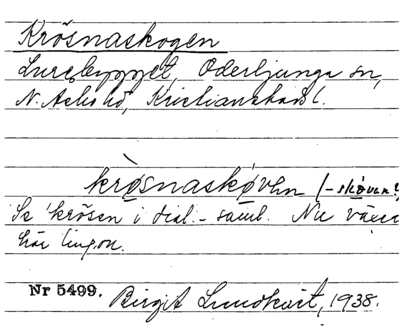 Krösnaskogen
Lursbygget, Oderljunga sn,
N. Åsbo hd, Kristianstads l.
krösnaskøvən (-skøvən?)
Se krösen i dial.-saml. Nu växer
här lingon.
Nr 5499. Birgit Lundkvist, 1938.